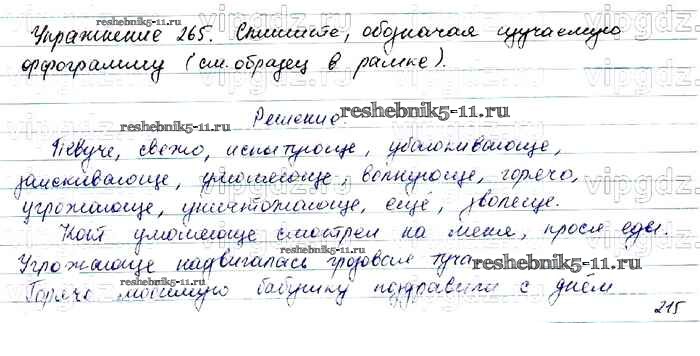 reshebnik5-11.ru
Упражнение 265. Спишите, обозначая изучаемую
орфограмму (см. образец в рамке).
Решение. reshebnik5-11.ru
reshebnik5-11.ru
Певуче, свежо, испытующе, убаюкивающе,
заискивающе, умоляюще, волнующе, горячо,
угрожающе, уничтожающе, ещё, зловеще.
Кот умоляюще смотрел на меня, прося еды.
reshebnik5-11.ru
Угрожающе надвигалась грозовая туча. reshebnik5-11.ru
Горячо любимую бабушку поздравили с днём
reshebnik5-11.ru
215
vipgdz.ru